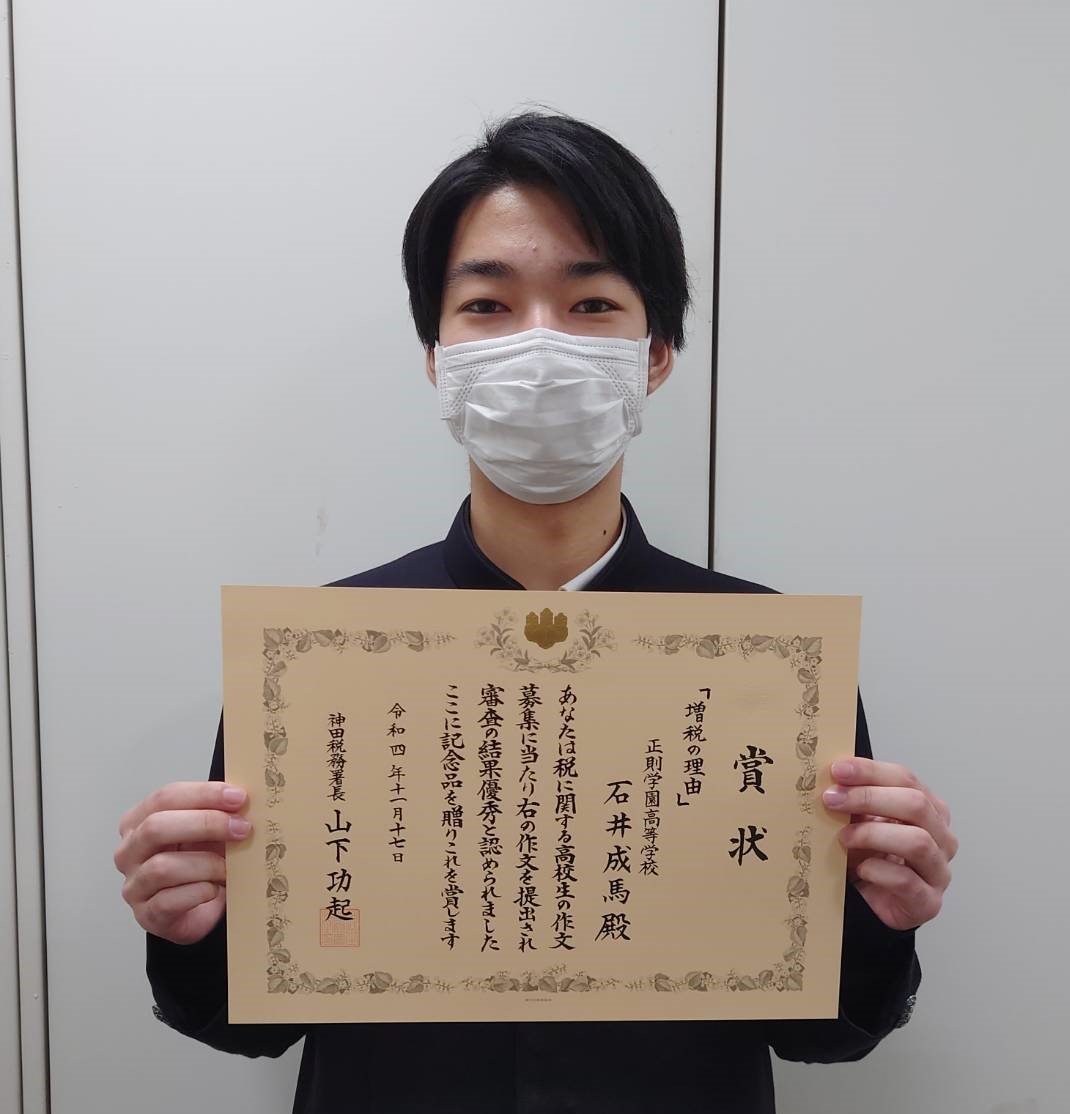 賞状
「増税の理由」
正則学園高等学校
石井成馬殿
あなたは税に関する高校生の作文
募集に当たり右の作文を提出され
審査の結果優秀と認められました
ここに記念品を贈りこれを賞します
令和四年十一月十七日
神田税務署長 山下功起